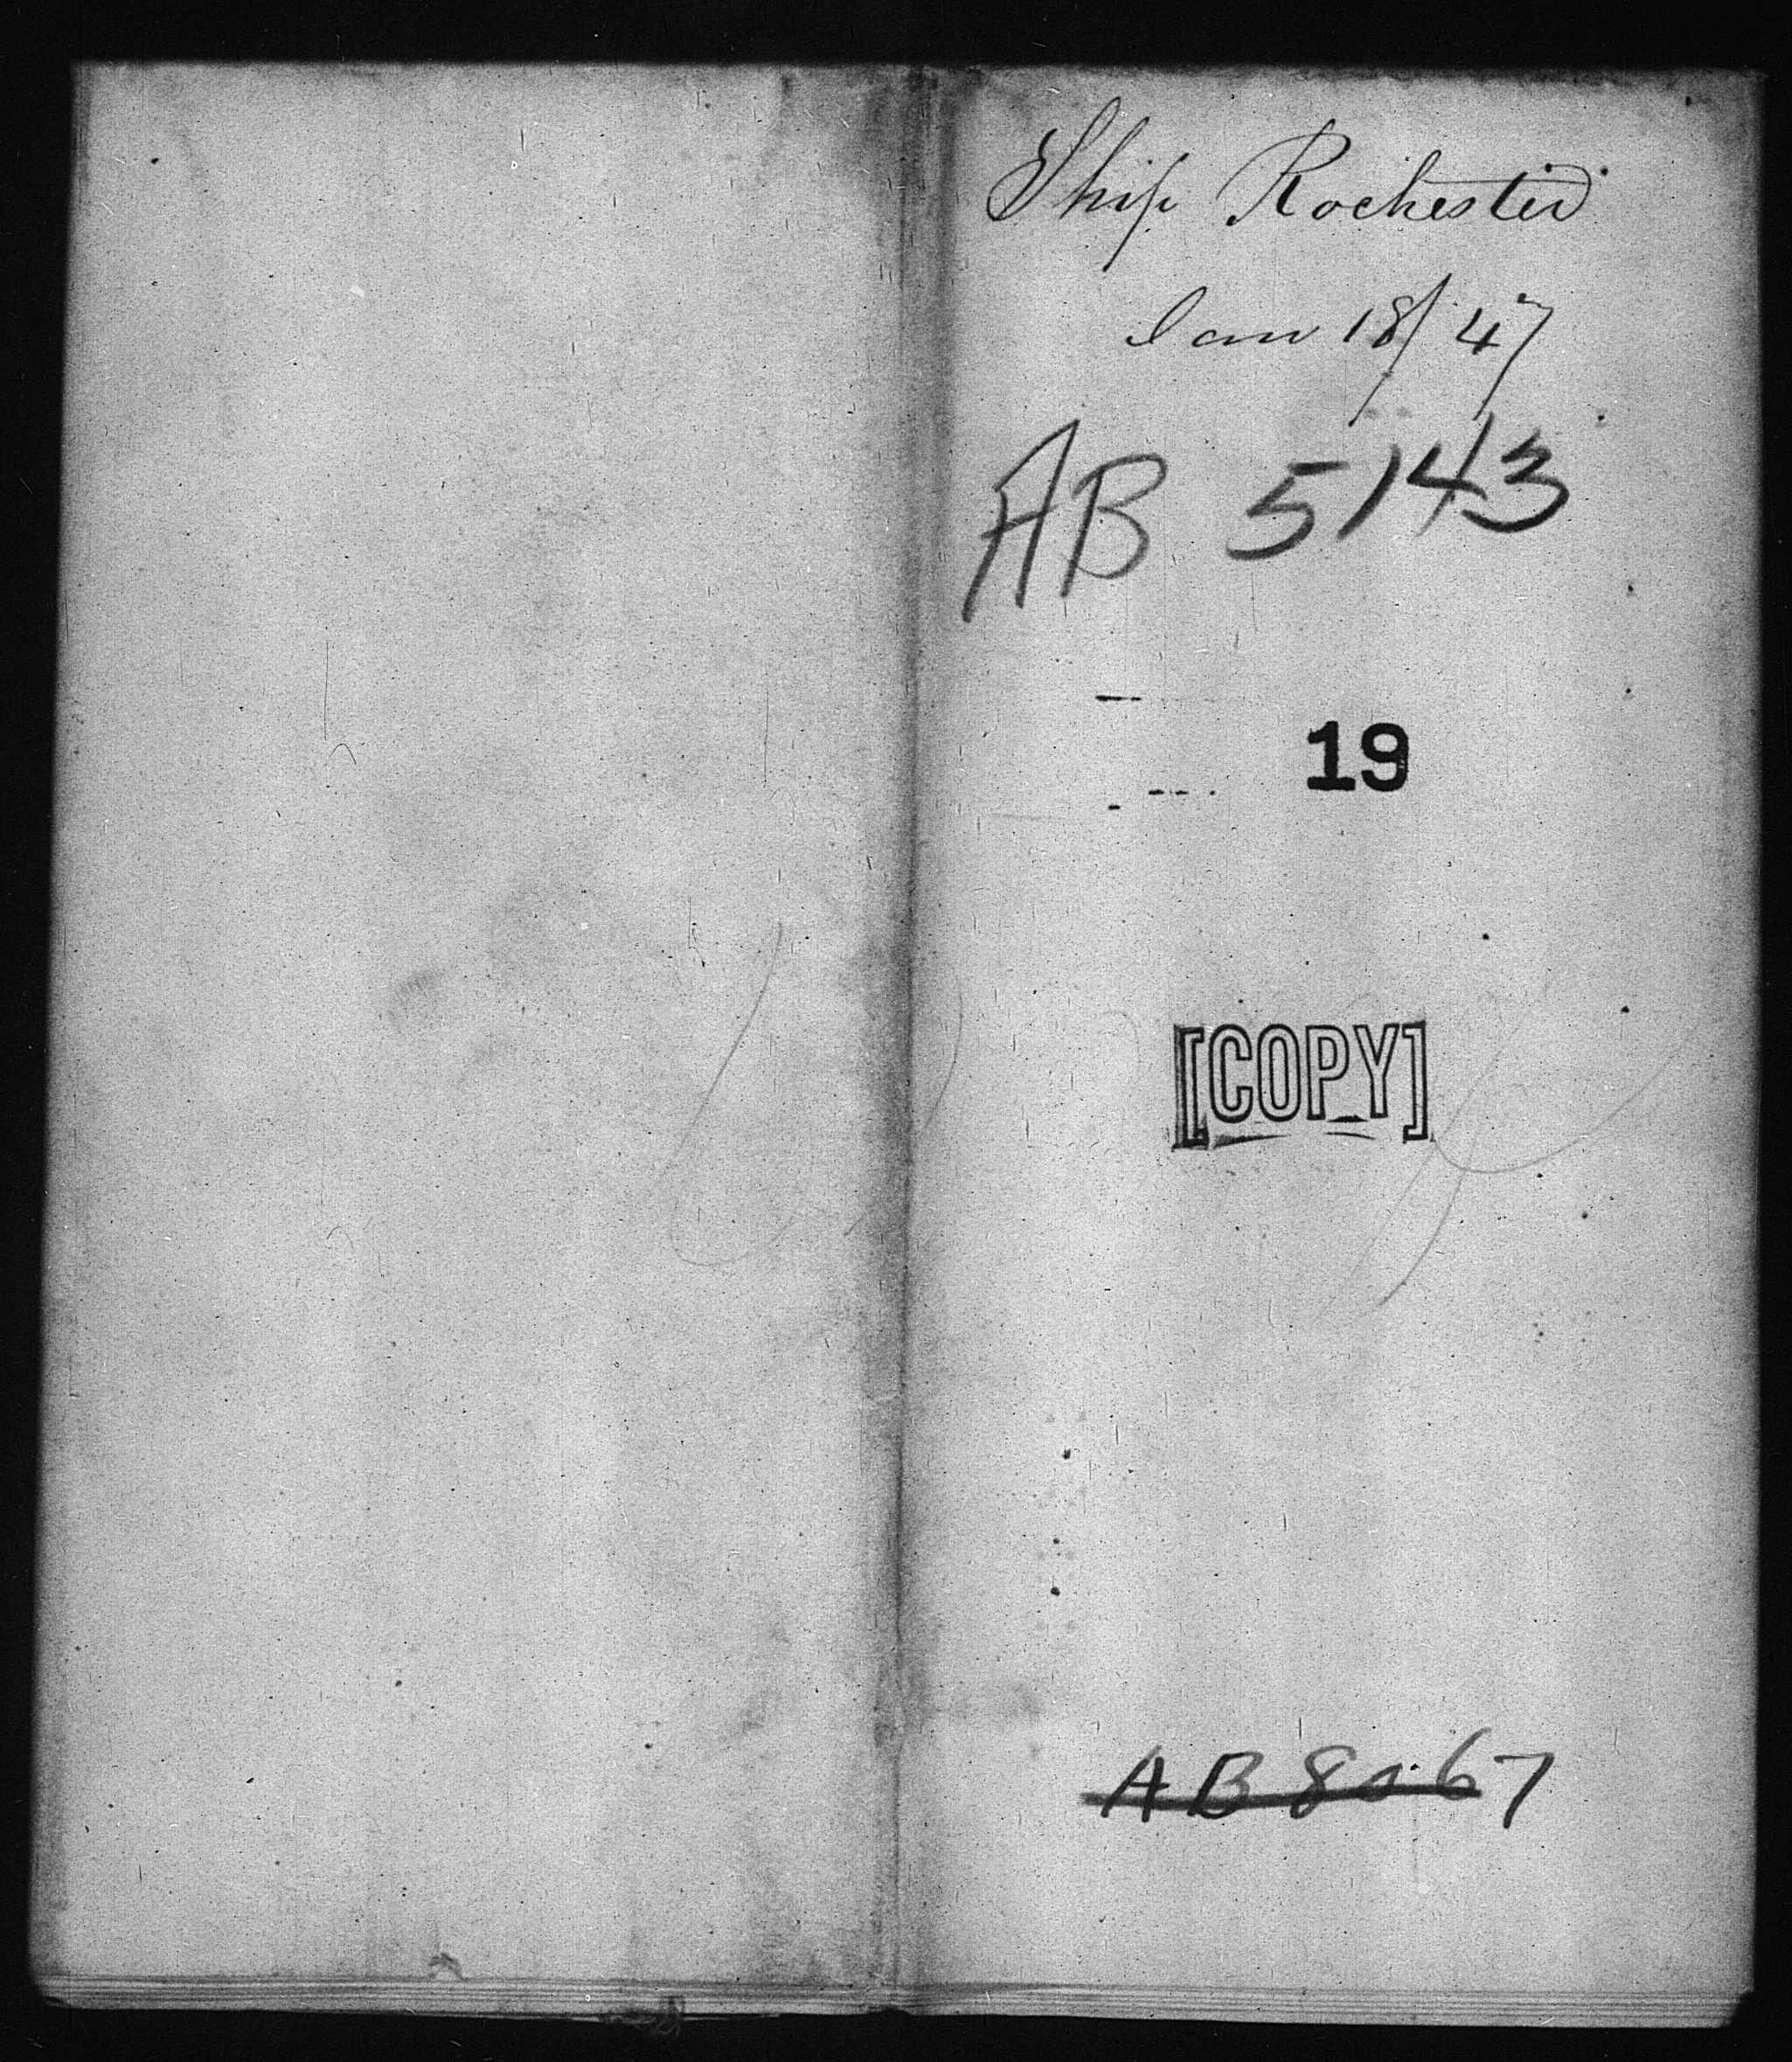 Ship Rochester
Jan 18/47
AB 5143
19
[COPY]
AB 8067